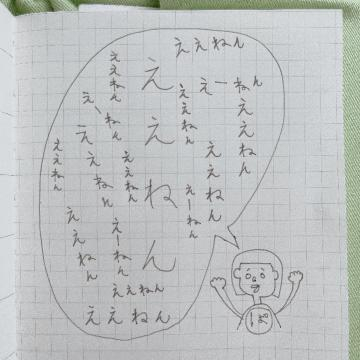 ええねん
えーねん
ええねん
ええねん
ええねん
えーねん
ええねん
ええねん
えーねん
ええねん
えーねん
ええねん
ええねん
ええねん
ええねん
ええねん
ええねん
ぽ